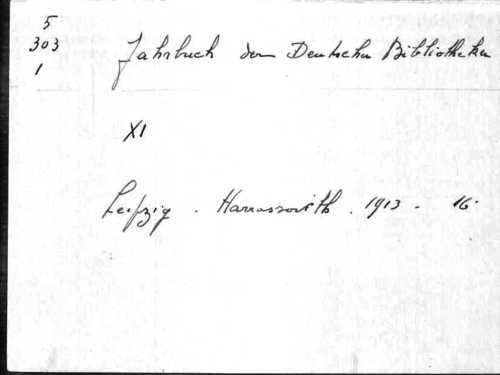 5
303
1
Jahrbuch der Deutschen Bibliotheken
XI
Leipzig . Harrassowith . 1913 . 16.